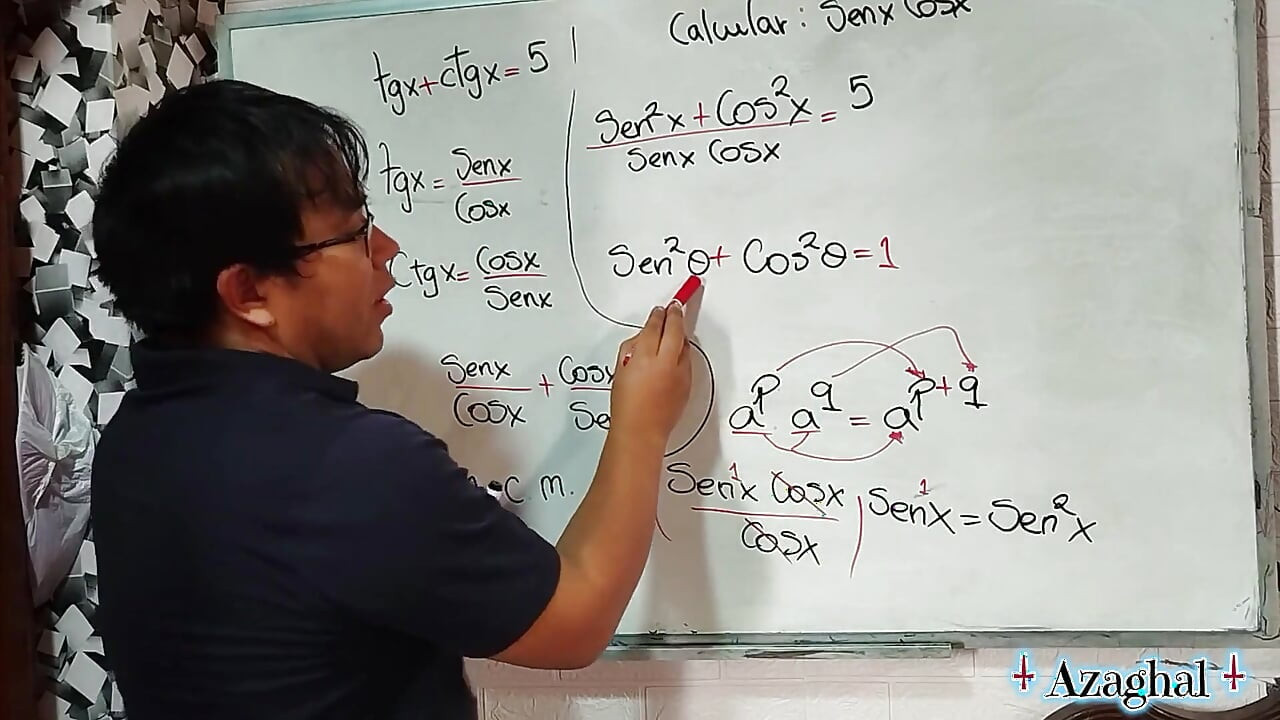 Calcular: Senx Cosx
tgx+ctgx=5
tgx = Senx/Cosx
Ctgx= Cosx/Senx
Senx/Cosx +
m.
(Sen²x + Cos²x)/(Senx Cosx) = 5
Sen²θ+ Cos²θ=1
a^p . a^q = a^p+q
Sen¹x Cosx/Cosx
Sen¹x = Sen²x
Azaghal